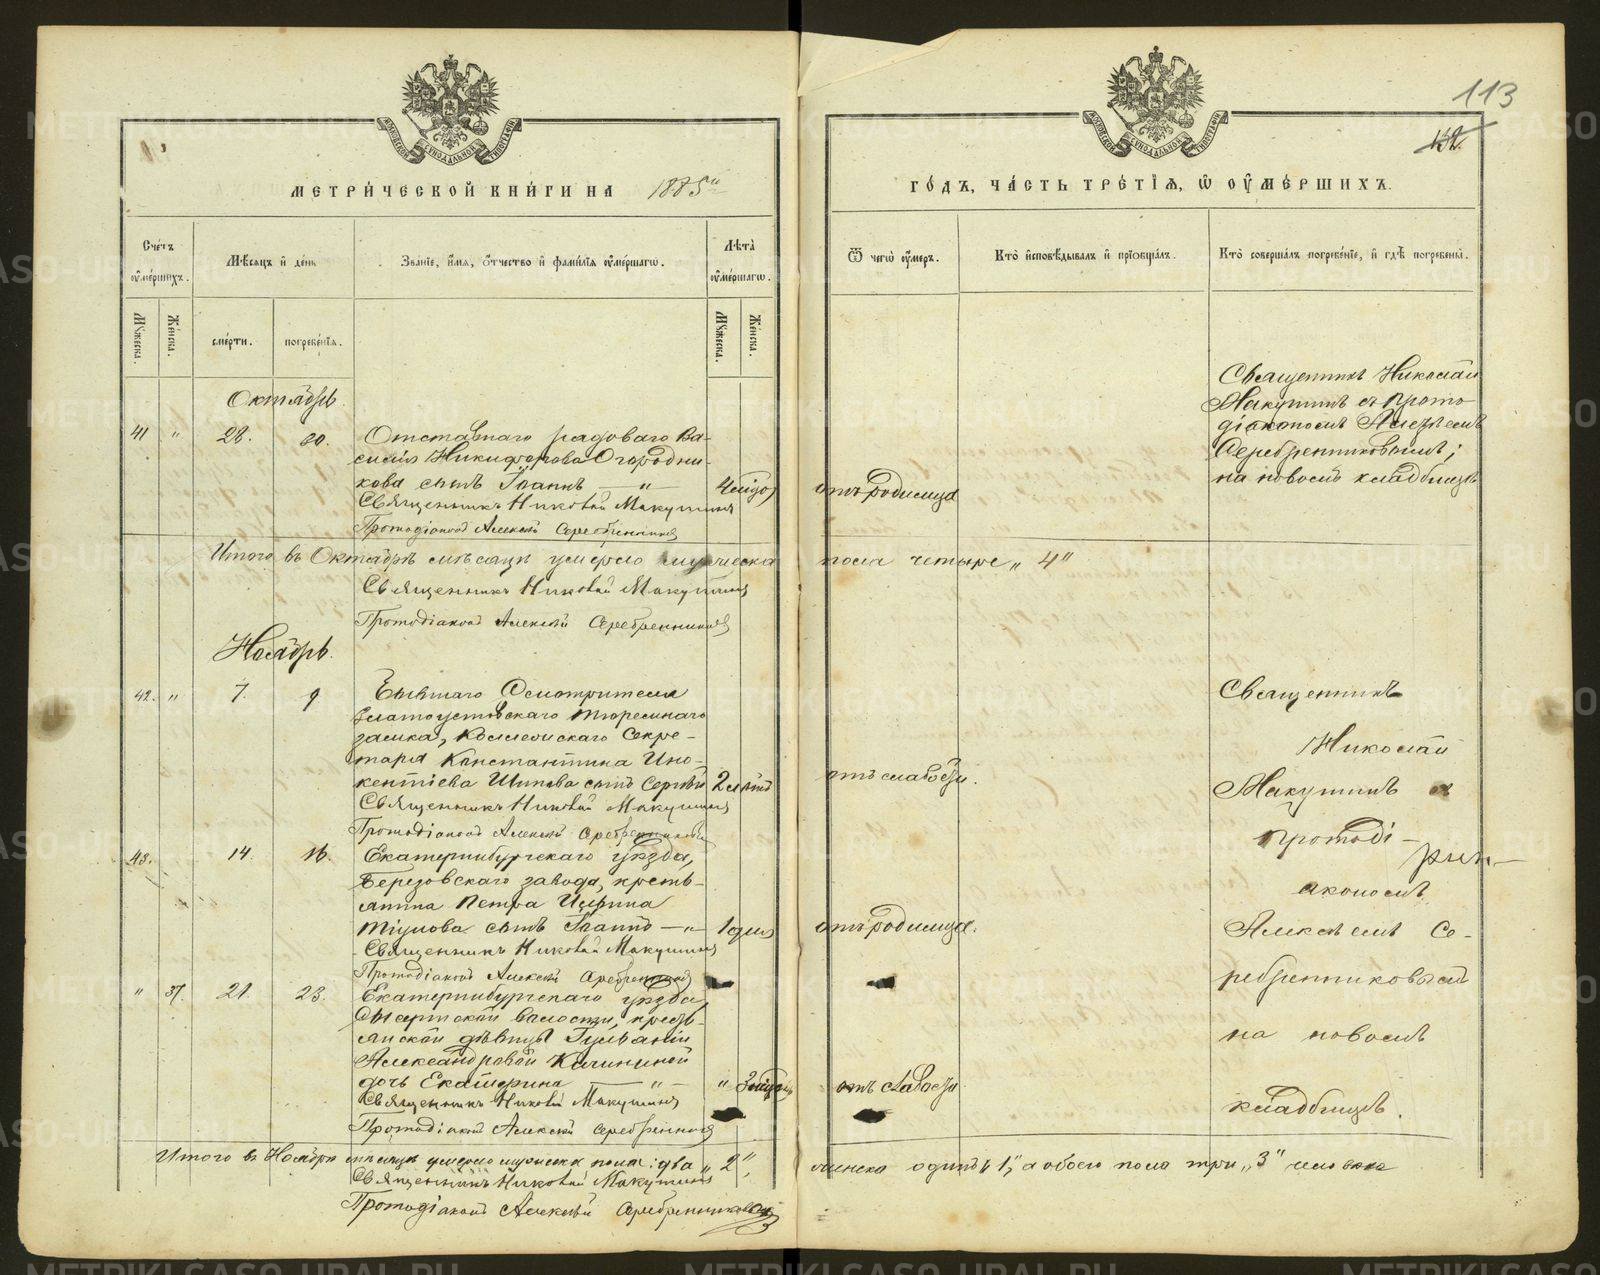 113
132.
МЕТРИЧЕСКОЙ КНИГИ НА 1885й
ГОДЪ, ЧАСТЬ ТРЕТІЯ, Ѡ ОУМЕРШИХЪ.
Счетъ оумершихъ.
Мѣсяцъ и день
Званіе, имя, отчество и фамилія оумершагѡ.
Лѣта оумершагѡ.
Ѿ чегѡ оумеръ.
Кто исповѣдывалъ и пріобщалъ.
Кто совершалъ погребеніе, и гдѣ погребены.
Мужеска.
Женска.
смерти.
погребенія.
Мужеска.
Женска.
Октябрь.
41 " 28. 30. Отставнаго рядоваго Ва-
силія Никифорова Огородни-
кова сынъ Іоаннъ — " —
отъ родимца
Священникъ Николай Макушинъ
Протодіаконъ Алексѣй Серебренниковъ
Священникъ Николай
Макушинъ съ прото-
діакономъ Алексѣемъ
Серебренниковымъ;
на новомъ кладбищѣ
Итого въ Октябрѣ мѣсяцѣ умерло мужеска пола четыре „ 4"
Священникъ Николай Макушинъ
Протодіаконъ Алексѣй Серебренниковъ
Ноябрь.
42. " 7. 9 Бывшаго Смотрителя
Златоустовскаго тюремнаго
замка, Коллежскаго Секре-
таря Константина Ино-
кентіева Шипова сынъ Сергѣй 2 лѣтъ
отъ слабости.
Священникъ Николай Макушинъ
Протодіаконъ Алексѣй Серебренниковъ
43. 14. 16. Екатеринбургскаго уѣзда,
Березовскаго завода, кресть-
янина Петра
сынъ Іоаннъ — " —
отъ родимца.
Священникъ Николай Макушинъ
Протодіаконъ Алексѣй Серебренниковъ
" 37. 21. 23. Екатеринбургскаго уѣзда,
Сысертской волости, кресть-
янской дѣвицы
Александровой Калининой
дочь Екатерина — " —
отъ слабости
Священникъ Николай Макушинъ
Протодіаконъ Алексѣй Серебренниковъ
Священникъ
Николай
Макушинъ съ
протоді-
акономъ
Алексѣемъ Се-
ребренниковымъ
на новомъ
кладбищѣ.
Итого въ Ноябрѣ мѣсяцѣ умерло мужеска пола: два „ 2", женска одинъ „ 1", а обоего пола три „ 3" человека
Священникъ Николай Макушинъ
Протодіаконъ Алексѣй Серебренниковъ
METRIKI.GASO-URAL.RU